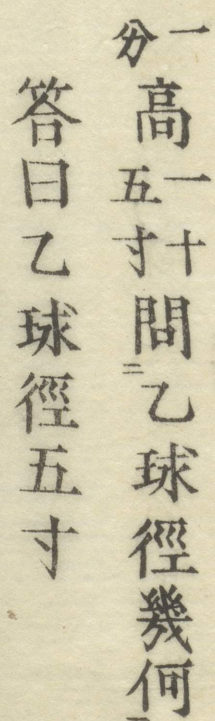 一分高一十五寸問㆓乙球徑幾何
答曰乙球徑五寸